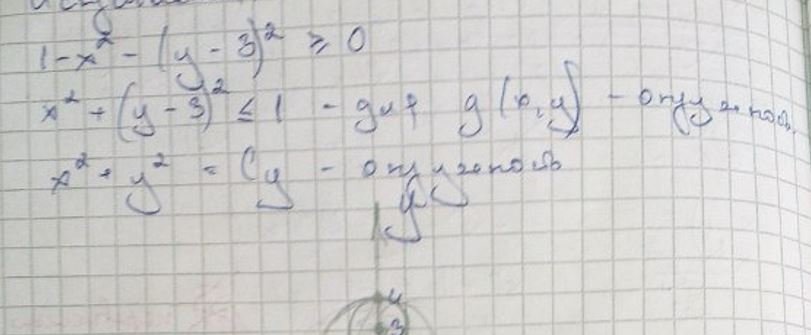 1-x² - (y-3)² ≥ 0
x² + (y-3)² ≤ 1 - для g(x,y) - окружность
x² + y² = Cy - окружность
y
4
3